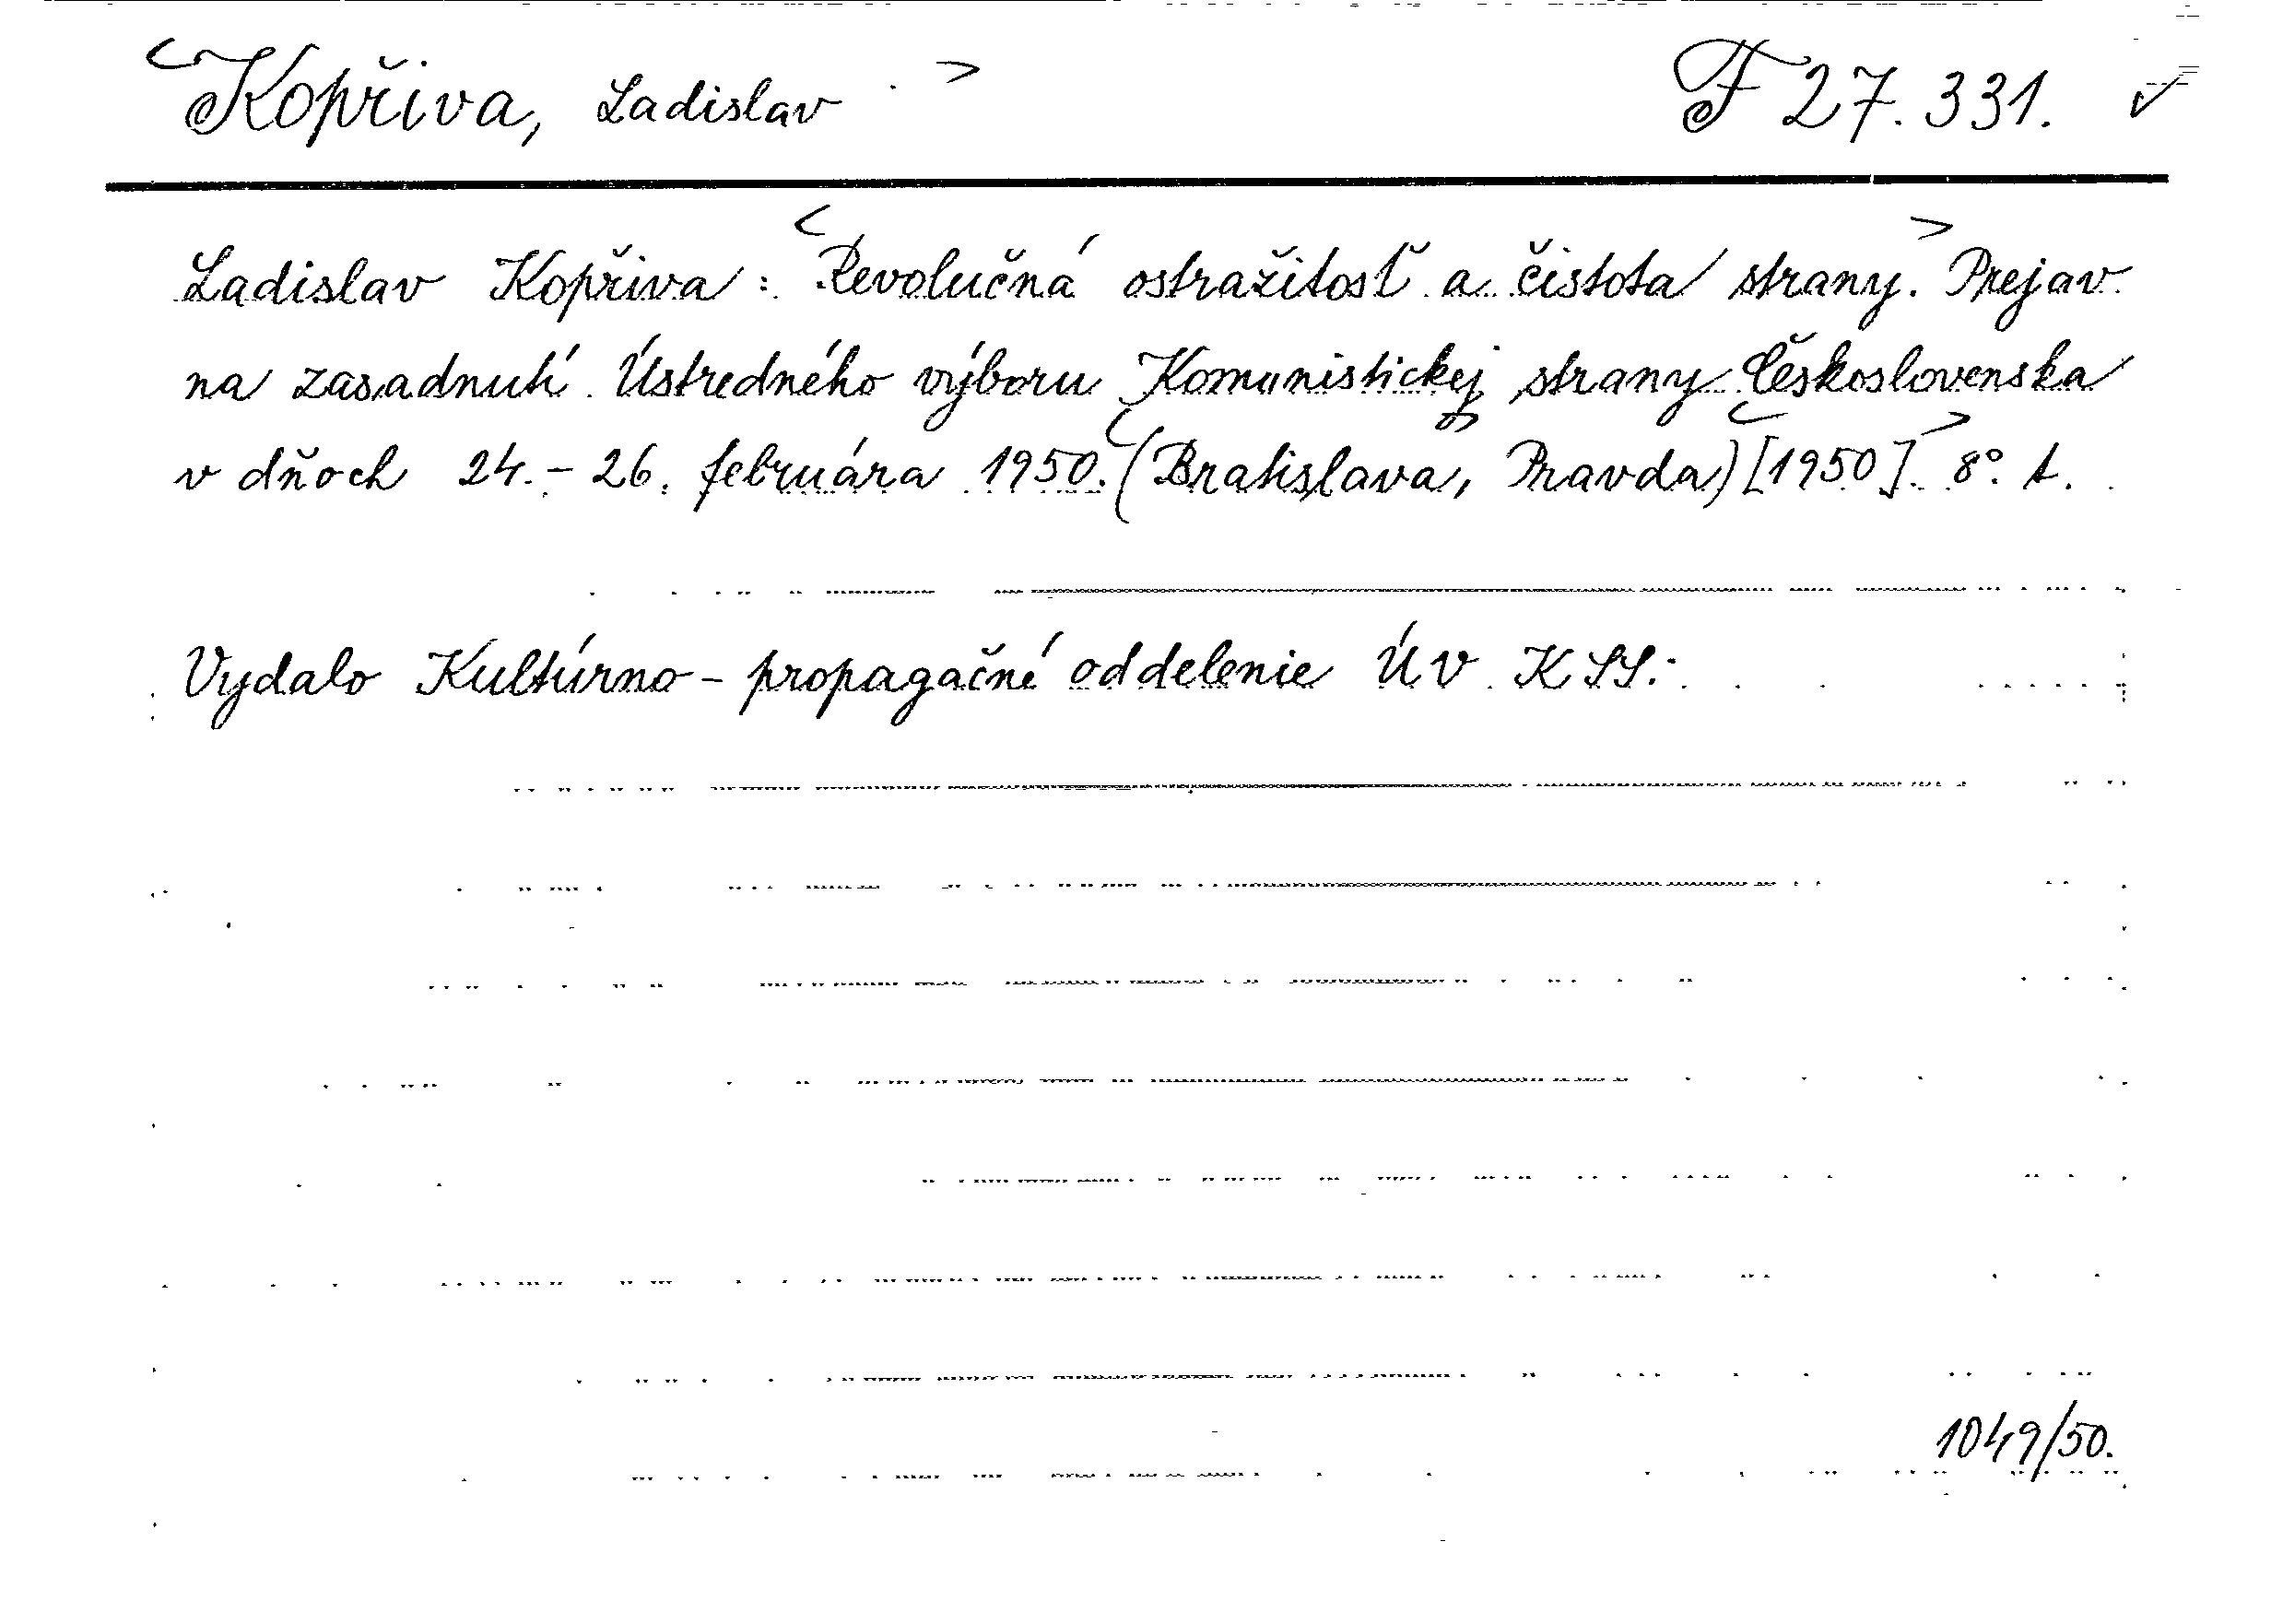 <Kopřiva, Ladislav> F 27.331. ✓
Ladislav Kopřiva: <Revolučná ostražitosť a čistota strany.> Prejav
na zasadnutí Ústredného výboru Komunistickej strany Československa
v dňoch 24.-26. februára 1950. <(Bratislava,> Pravda) <[1950].> 8°. t.
Vydalo Kultúrno-propagačné oddelenie ÚV KSS.
1049/50.